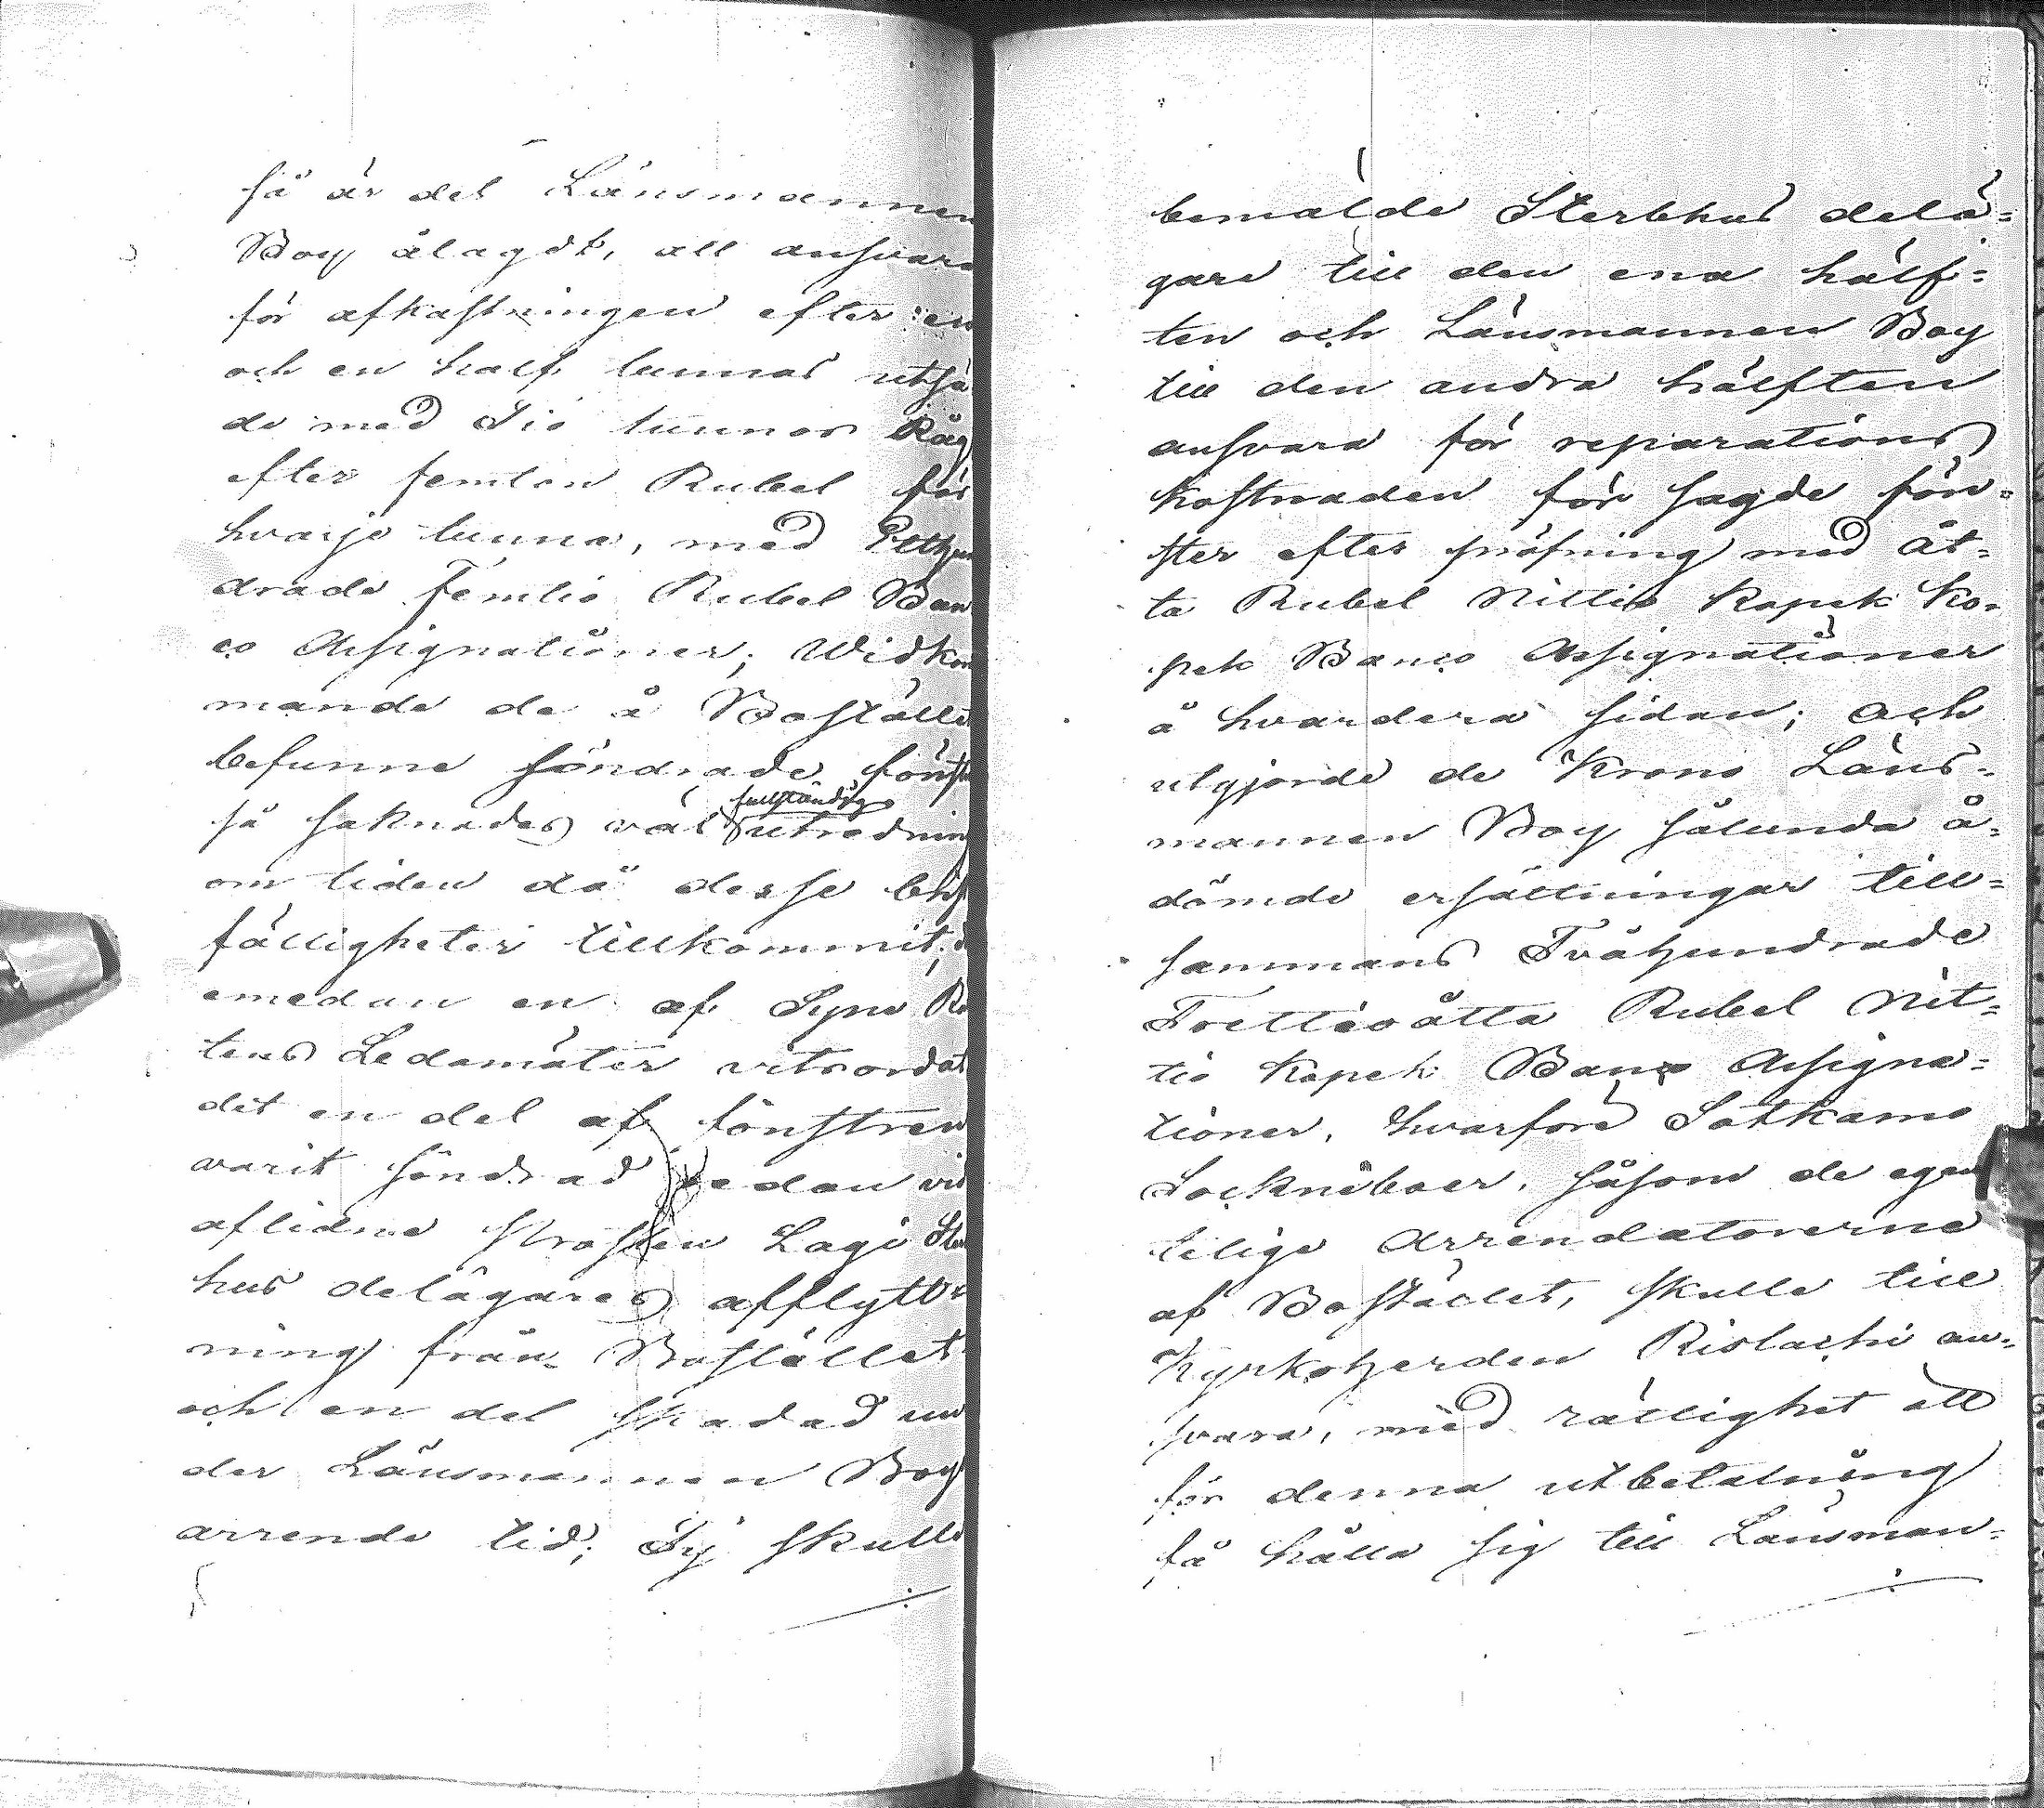 så är det Länsmannen
Boy ålagdt, att ansvara
för afkastningen efter en
och en half tunnas utsä
de med Tio tunnor Råg
efter femton Rubel för
hvarje tunna, med Etthun
drade Femtio Rubel Ban
co Assignationer; Widkom
mande de å Bostället
befunne söndrade fönster
så saknades väl fullständig utredning
om tiden då desse
fälligheter tillkommit,
emedan en af Syne Rä
tens Ledamöter vitsordat
det en del af fönstren
varit söndrad redan vid
aflidne Prosten Lagi Sterb
hus delägares afflytt
ning från Bostället
och en del skadad un
der Länsmannen Boy
arrende tid; Ty skulle
bemälde Sterbhus delä=
gare till den ena hälf=
ten och Länsmannen Boy
till den andra hälften
ansvara för reparations
kostnaden för sagde fön=
ster efter pröfning med åt=
ta Rubel Nittio Kopek Ko=
pek Banco Assignationer
å hvardera sidan; och
utgjorde de Krono Läns=
mannen Boy sålunda å=
dömde ersättningar till=
sammans Tvåhundrade
Trettioåtta Rubel Nit=
tio Kopek Banco Assigna=
tioner, hvarföre Sotkamo
Sockneboer, såsom de egent
telige Arrendatorerne
af Bostället, skulle till
Kyrkoherden Rislachi an=
svara, med rättighet att
för denna utbetalning
få hålla sig till Länsman=